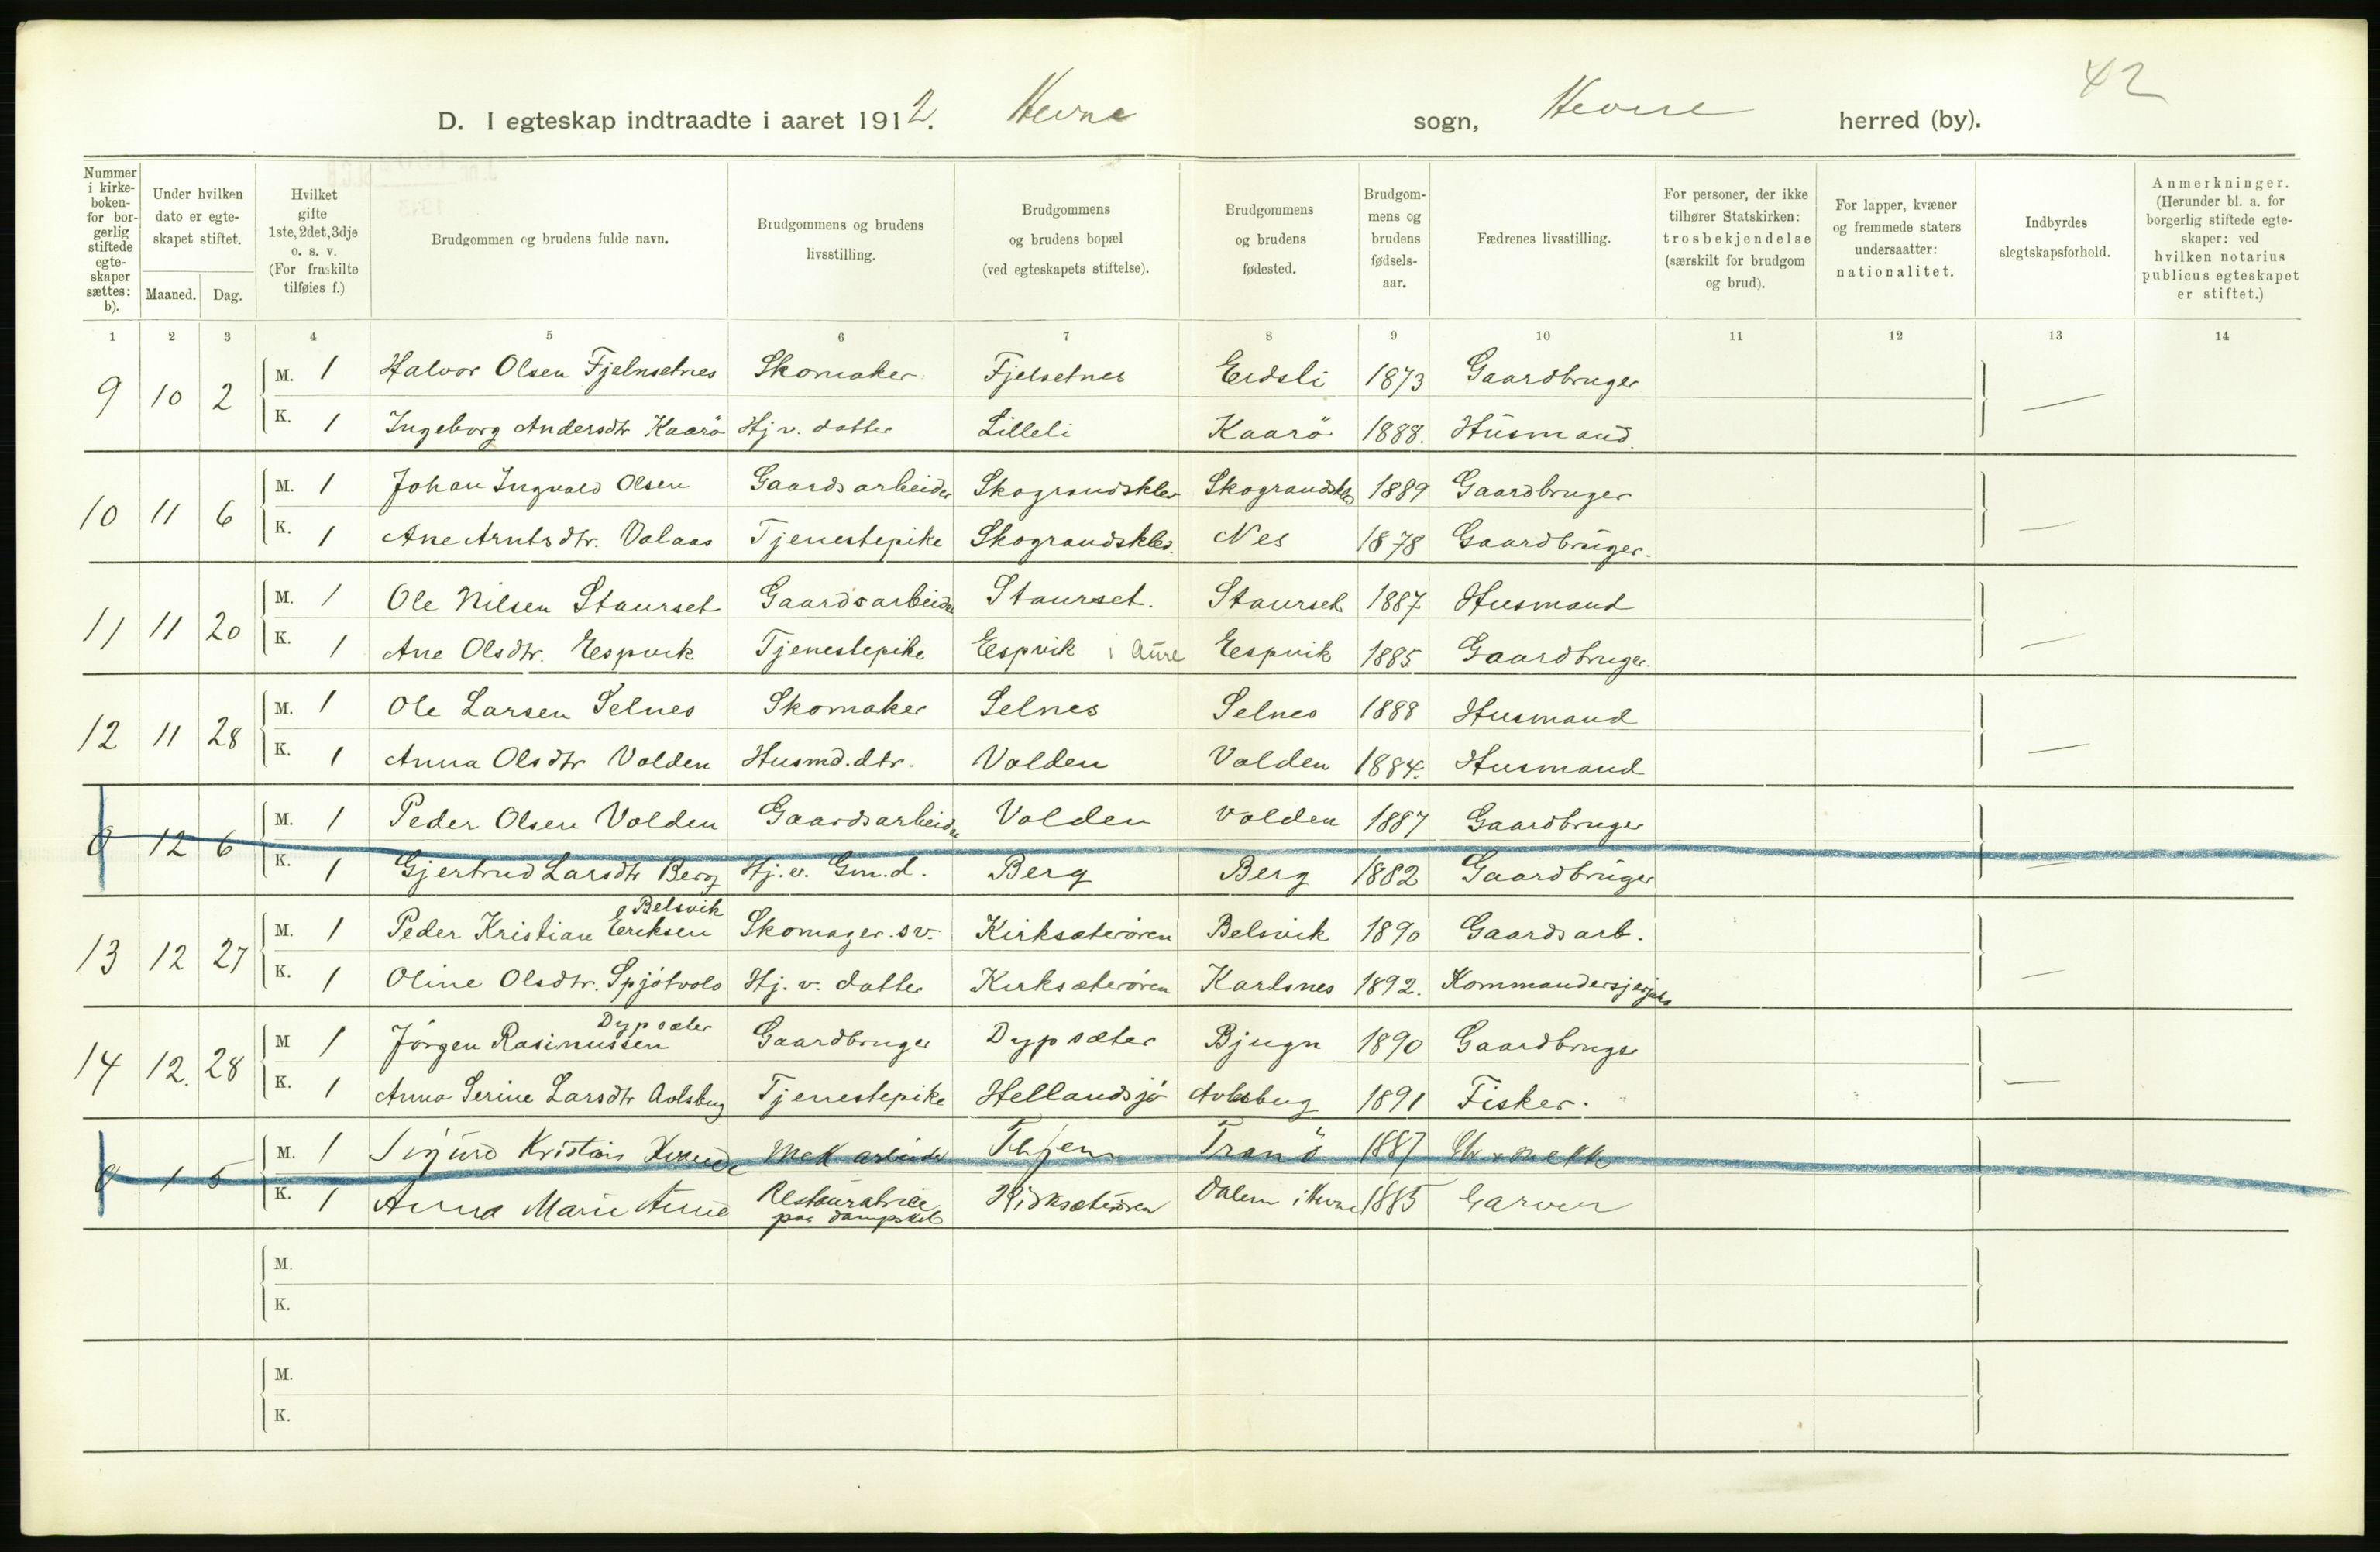 42
D. I egteskap indtraadte i aaret 1912. Hevne sogn, Hevne herred (by).
Nummer i kirkeboken- for borgerlig stiftede egteskaper sættes: b). Under hvilken dato er egteskapet stiftet. Maaned. Dag. Hvilket gifte 1ste, 2det, 3dje o. s. v. (For fraskilte tilføies f.) Brudgommen og brudens fulde navn. Brudgommens og brudens livsstilling. Brudgommens og brudens bopæl (ved egteskapets stiftelse). Brudgommens og brudens fødested. Brudgommens og brudens fødselsaar. Fædrenes livsstilling. For personer, der ikke tilhører Statskirken: trosbekjendelse (særskilt for brudgom og brud). For lapper, kvæner og fremmede staters undersaatter: nationalitet. Indbyrdes slegtskapsforhold. Anmerkninger. (Herunder bl. a. for borgerlig stiftede egteskaper: ved hvilken notarius publicus egteskapet er stiftet.)
1 2 3 4 5 6 7 8 9 10 11 12 13 14
9 10 2 M. 1 Halvor Olsen Fjelnsetnes Skomaker Fjelsetnes Eidsli 1873 Gaardbruger
K. 1 Ingeborg Andersdtr Kaarö Hj v. datter Lilleli Kaarö 1888. Husmand. —
10 11 6 M. 1 Johan Ingvald Olsen Gaardsarbeider Skograndsklev Skograndsklev 1889 Gaardbruger
K. 1 Ane Arntsdtr. Valaas Tjenestepike Skograndsklev. Nes 1878 Gaardbruger. —
11 11 20 M. 1 Ole Nilsen Staurset Gaardsarbeider Staurset. Staurset 1887 Husmand
K. 1 Ane Olsdtr. Espvik Tjenestepike Espvik i Aure Espvik 1885 Gaardbruger. —
12 11 28 M. 1 Ole Larsen Selnes Skomaker Selnes Selnes 1888 Husmand
K. 1 Anna Olsdtr Volden Husmd. dtr. Volden Volden 1884. Husmand —
0 12 6 M. 1 Peder Olsen Volden Gaardsarbeider Volden Volden 1887 Gaardbruger
K. 1 Gjertrud Larsdtr Berg Hj. v. Gm. d. Berg Berg 1882 Gaardbruger —
Belsvik
13 12 27 M. 1 Peder Kristian Eriksen Skomager. sv. Kirksæterøren Belsvik 1890 Gaardsarb.
K. 1 Oline Olsdtr. Spjøtvold Hj. v. datter Kirksæterøren Karlsnes 1892. —
Dypsæter
14 12. 28 M 1 Jørgen Rasmussen Gaardbruger Dypsæter Bjugn 1890 Gaardbruger
K. 1 Anna Serine Larsdtr Avlsbug Tjenestepike Hellandsjø Avlsbug 1891 Fisker. —
0 1 5 M. 1 Sigurd Kristian Mek arbeider Tranö 1887
K. 1 Anna Marie Aune Restauratrice Kirksæterøren Dalem i Hevne 1885 Garver
paa dampskib
M.
K.
M.
K.